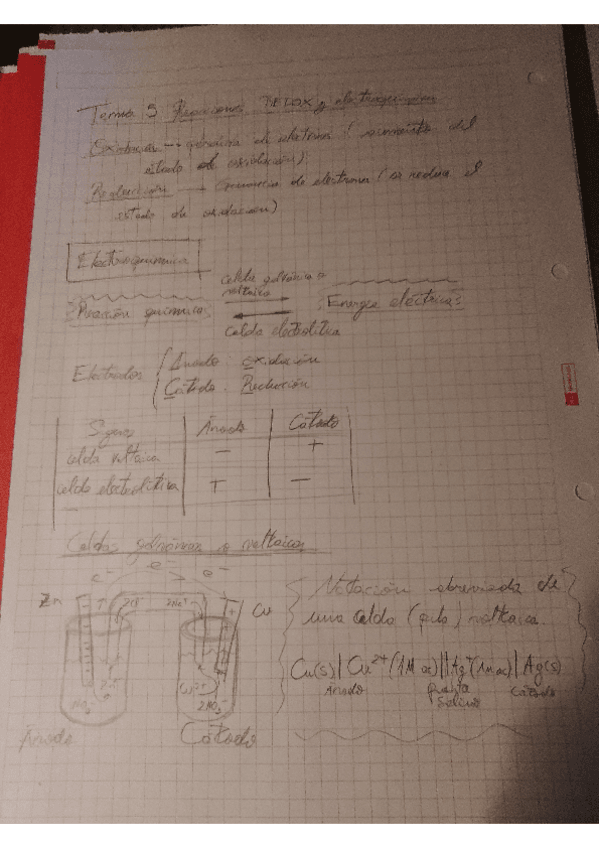 Tema 5 Reacciones REDOX y electroquímica
Oxidación → pérdida de electrones (aumento del
estado de oxidación)
Reducción → ganancia de electrones (se reduce el
estado de oxidación)
Electroquímica
celda galvánica o
voltaica
Reacción química
Energía eléctrica
Celda electrolítica
Electrodos
Ánodo: Oxidación
Cátodo: Reducción
Signos Ánodo Cátodo
celda voltaica - +
celda electrolítica + -
Celdas galvánicas o voltaicas
e⁻ e⁻ e⁻
Zn
Cu
Cu²⁺
2NO₃⁻
Ánodo
Cátodo
Notación abreviada de
una celda (pila) voltaica
Cu(s) | Cu²⁺(1M ac) || Ag⁺(1M ac) | Ag(s)
Ánodo
puente
salino
Cátodo